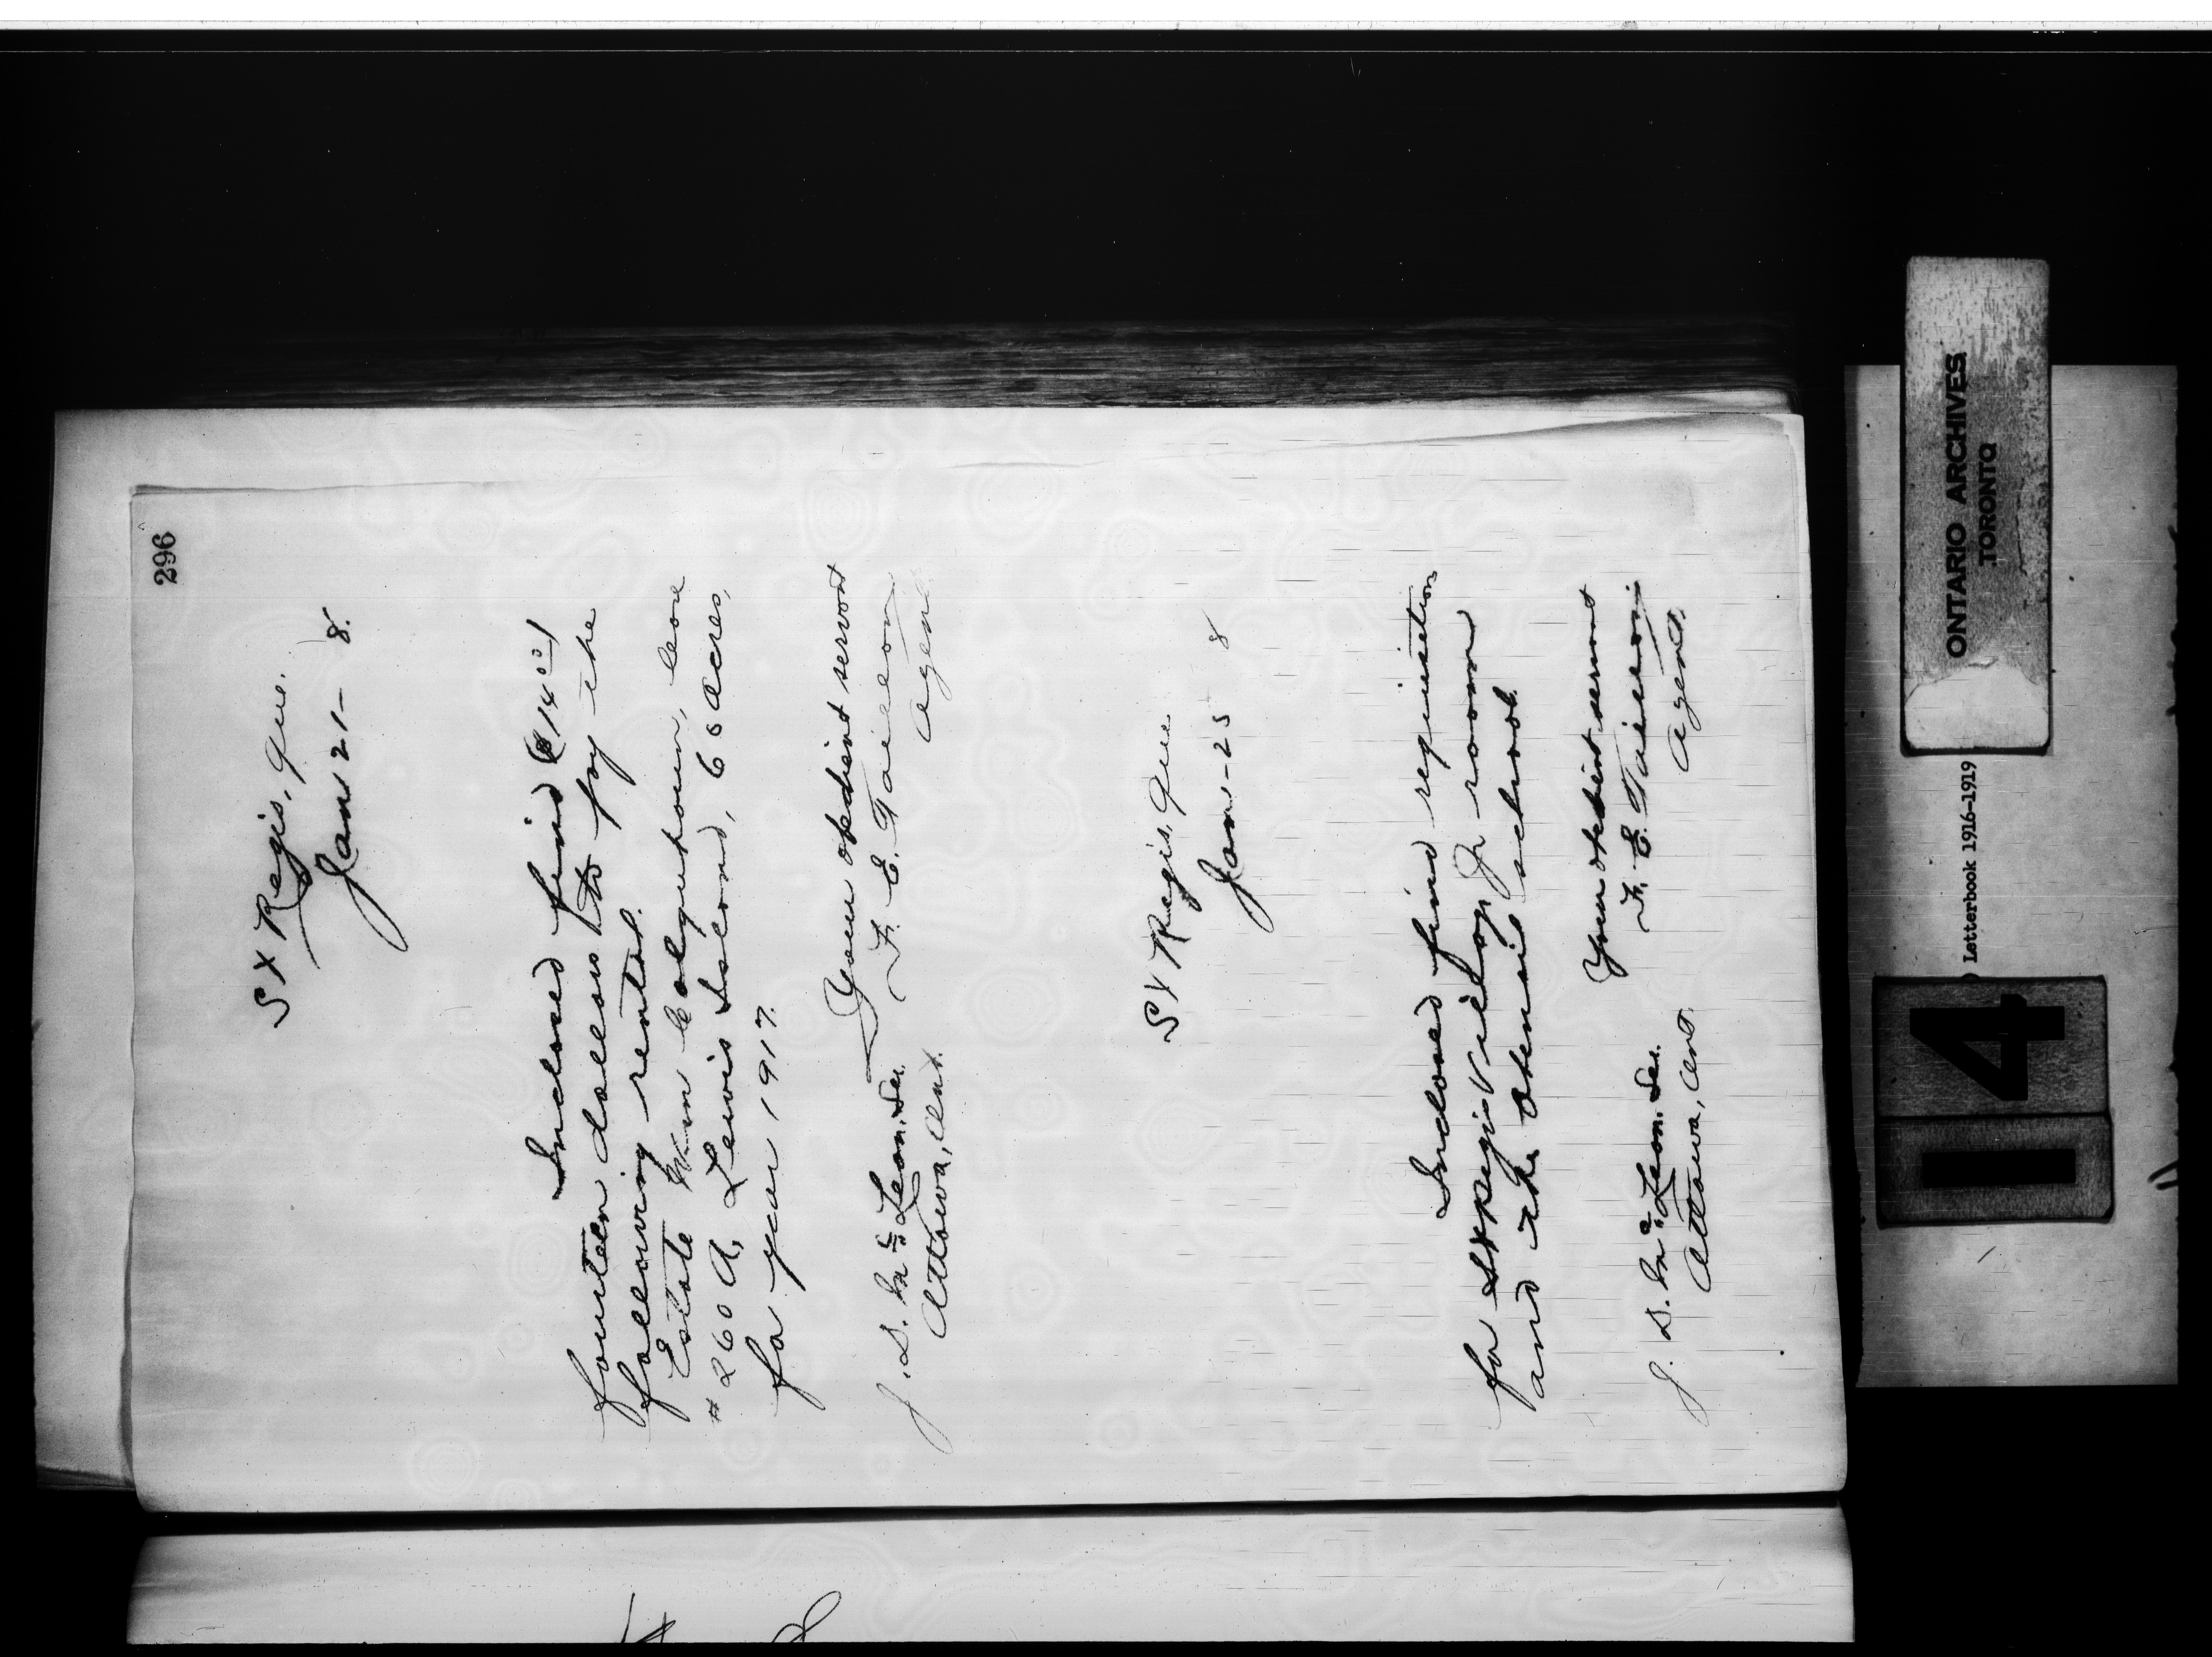 296
St Regis, Que.
Jan 21- 8.
Inclosed find ($14.00)
fourteen dollars to pay the
following rental.
Estate Wm Colquhoun, lease
# 260 A, Lewis Island, 60 acres,
for year 1917.
Your obedient servant
F. E. Taillon
Agent
J. D. McLean. Sec.
Ottawa, Ont.
St Regis, Que
Jan-25 8
Inclosed find requisition
for St Regis Village Jr room
and the school.
Your obedient servant
F. E. Taillon
Agent.
J. D. McLean. Sec.
Ottawa, Ont.
ONTARIO ARCHIVES
TORONTO
Letterbook 1916-1919
14